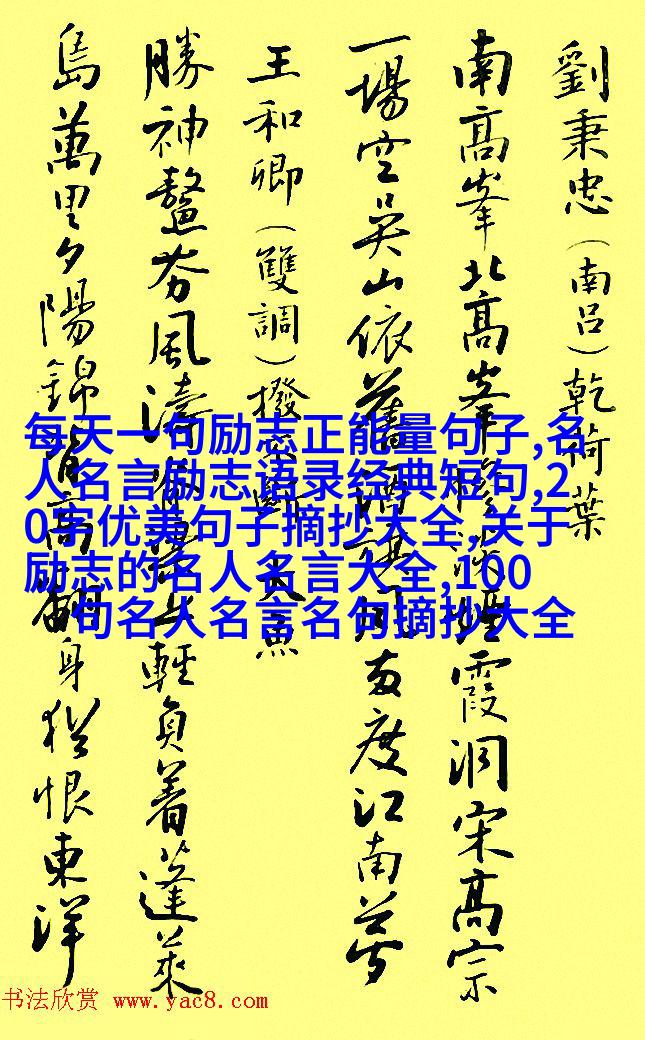 劉秉忠(南呂)乾荷葉
南高峯北高峯慘淡煙霞洞宋高宗
一場空吳山依舊酒旗風兩度江南夢
王和卿(雙調)撥不斷 大魚
勝神鰲夯風濤脊梁上輕負着蓬萊
島萬里夕陽錦背高翻身猶恨東洋
每天一句励志正能量句子,名
人名言励志语录经典短句,2
0字优美句子摘抄大全,关于
励志的名人名言大全,100
句名人名言名句摘抄大全
书法欣赏 www.yac8.com